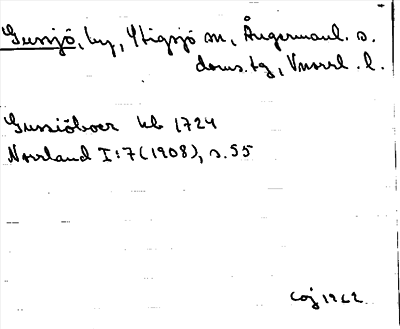 Gussjö, by, Ytigsjö sn, Ångermanl. s.
doms.tg, Vnorrl. l.
Gussiöboer kb 1724
Norrland I:7 (1908), s. 55
Coj 1962